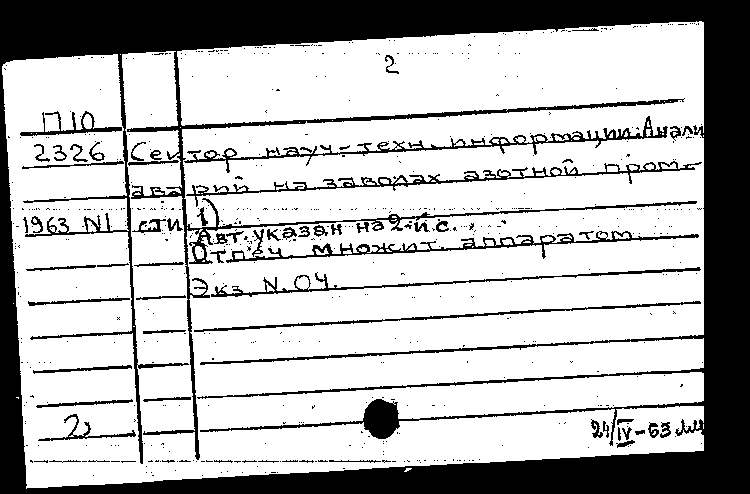 2
П10
2326 Сектор науч-техн. информации. Анали
аварий на заводах азотной пром-
1963 N1 сти. 1)
Авт. указан на 2-й с.
Отпеч. множит. аппаратом.
Экз. N. 04.
24/IV-63